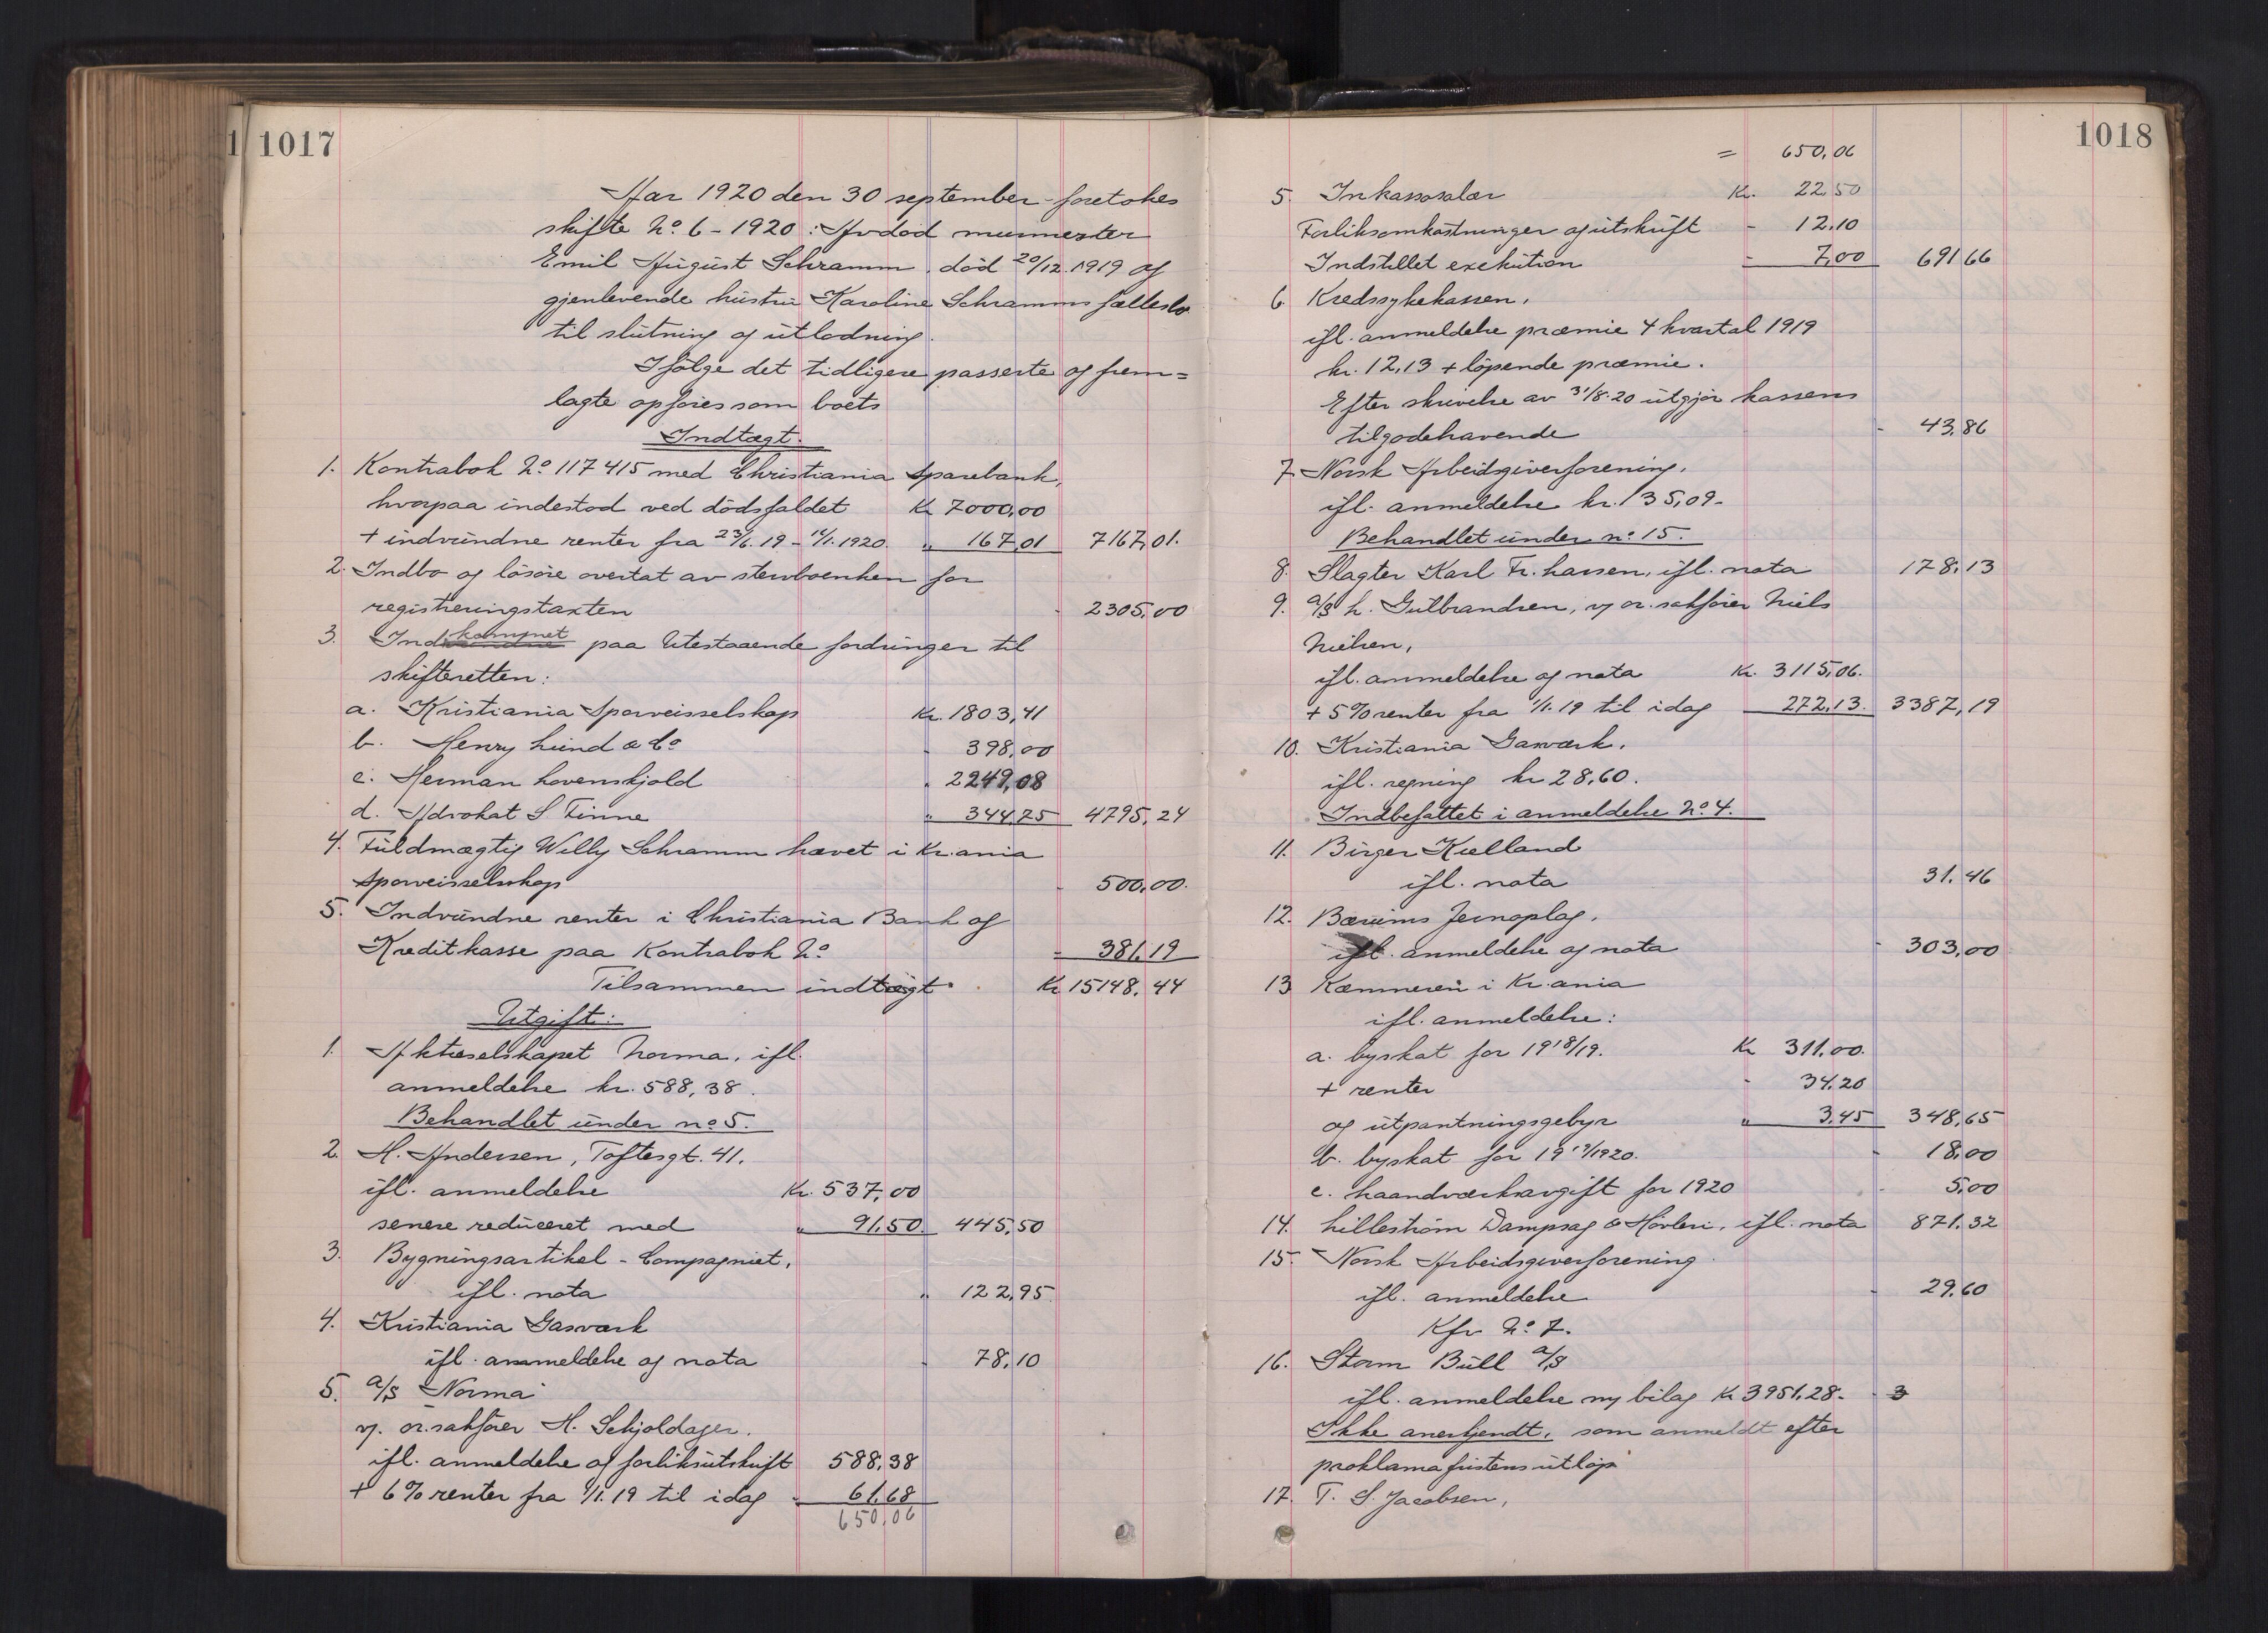 1 1017
Aar 1920 den 30 september foretokes
skifte No. 6 - 1920: Avdød murmester
Emil August Schramm, død 20/12.1919 og
gjenlevende hustru Karoline Schramms fællesbo
til slutning og utlodning.
Ifølge det tidligere passerte og frem=
lagte opføres som boets
Indtægt.
1. Kontrabok No 117415 med Christiania Sparebank,
hvorpaa indestod ved dødsfaldet Kr 7000,00
+ indvundne renter fra 23/6.19 - 14/1.1920. " 167,01 7167,01.
2. Indbo og løsøre overtat av sterboenken for
registreringstaxten - 2305,00
3. Indkommet paa utestaaende fordringer til
skifteretten:
a. Kristiania Sporveisselskap Kr. 1803,41
b. Henry Lund & Co - 398,00
c. Herman Lovenskjold " 2249,08
d. Advokat S Finne " 344,75 4795,24
4. Fuldmægtig Willy Schramm hævet i Kr.ania
Sporveisselskap - 500,00.
5. Indvundne renter i Christiania Bank og
Kreditkasse paa Kontrabok No - 381,19
Tilsammen indtægt. Kr 15148,44
Utgift:
1. Aktieselskapet Norma, ifl.
anmeldelse kr. 588,38.
Behandlet under no 5.
2. H. Andersen, Toftesgt. 41.
ifl. anmeldelse Kr. 537,00
senere reduceret med " 91,50. 445,50
3. Bygningsartikel-Compagniet,
ifl. nota " 122,95
4. Kristiania Gasværk
ifl. anmeldelse og nota - 78,10
5. a/s "Norma"
v. or.sakfører H. Schjoldager.
ifl. anmeldelse og forliksutskrift 588,38
+ 6% renter fra 1/1.19 til idag - 61,68
650,06
1018
= 650,06
5. Inkassosalær Kr. 22,50
Forliksomkostninger og utskrift - 12,10
Indstillet exekution - 7,00 691 66
6. Kredssykekassen,
ifl. anmeldelse præmie 4 kvartal 1919
kr. 12,13 + løpende præmie.
Efter skrivelse av 31/8.20 utgjør kassens
tilgodehavende - 43,86
7. Norsk Arbeidsgiverforening,
ifl. anmeldelse kr. 135,09-
Behandlet under no 15.
8. Slagter Karl Fr. Larsen, ifl. nota 178,13
9. a/s L. Gulbrandsen, v or. sakfører Niels
Nielsen,
ifl. anmeldelse og nota Kr. 3115,06.
+ 5% renter fra 1/1.19 til idag 272,13. 3387,19
10. Kristiania Gasværk,
ifl. regning kr 28,60.
Indbefattet i anmeldelse No 4.
11. Birger Kielland
ifl. nota 31,46
12. Bærums Jernoplag,
ifl. anmeldelse og nota - 303,00
13 Kæmneren i Kr.ania
ifl. anmeldelse:
a. byskat for 1918/19. Kr 311,00.
+ renter - 34,20
og utpantningsgebyr " 3,45 348,65
b. byskat for 1919/1920. - 18,00
c. haandværksavgift for 1920 - 5,00
14. Lillestrøm Dampsag & Høvleri, ifl. nota 871,32
15. Norsk Arbeidsgiverforening
ifl. anmeldelse - 29,60
Kfr No 7.
16. Storm Bull a/s
ifl. anmeldelse m/ bilag Kr 3951,28. - 3
Ikke anerkjendt, som anmeldt efter
proklamafristens utløp
17. T. S. Jacobsen,